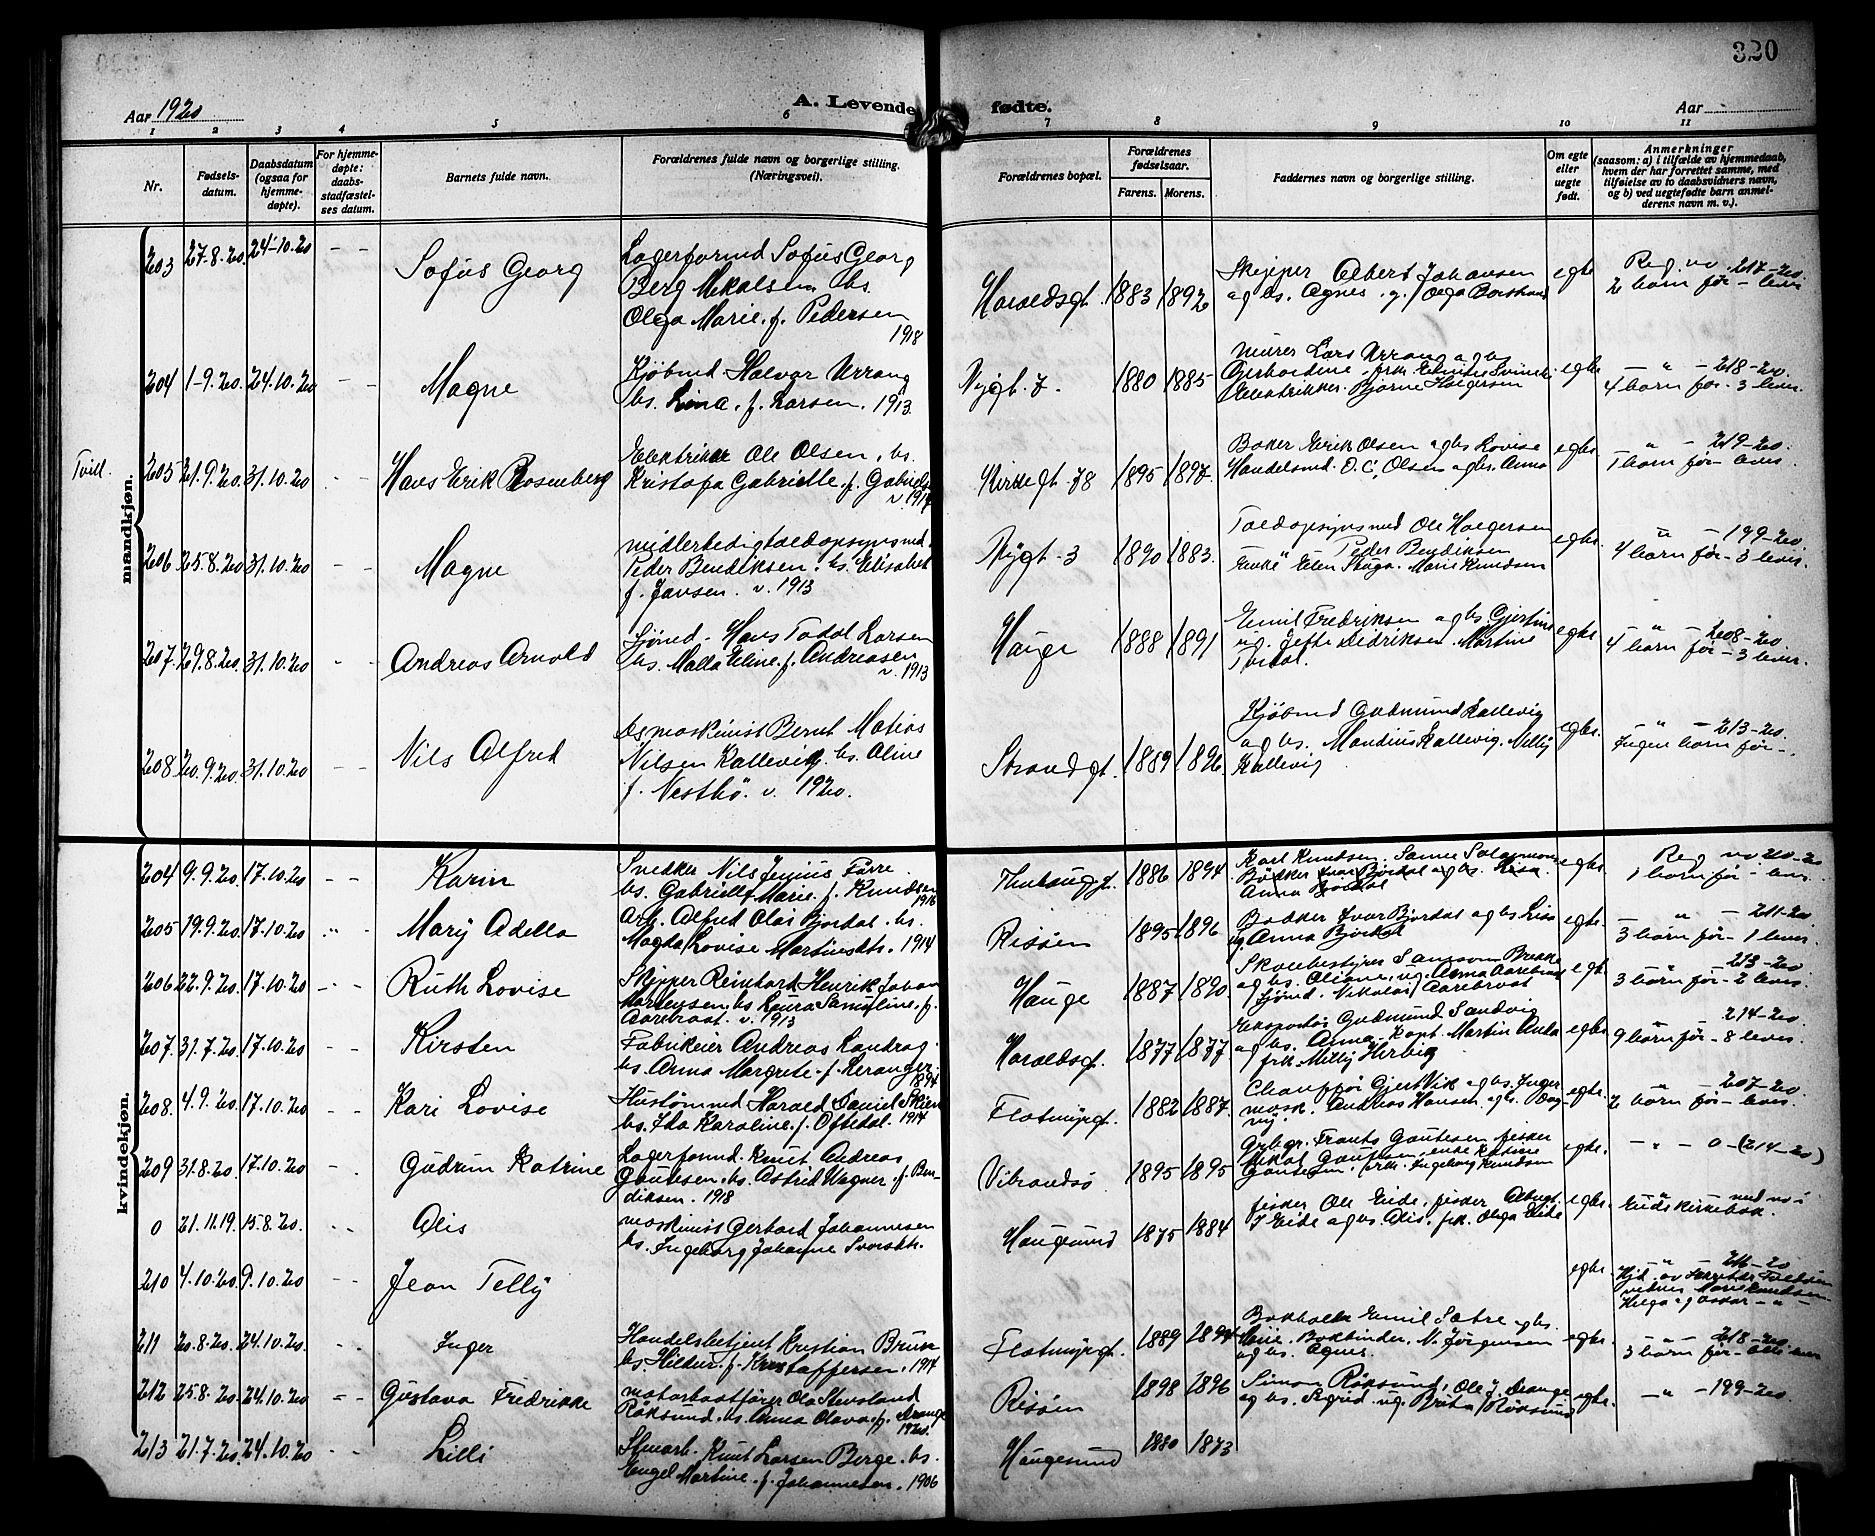 320
Aar 1920
A. Levende fødte.
Aar
1 2 3 4 5 6 7 8 9 10 11
Nr.
Fødsels-
datum.
Daabsdatum
(ogsaa for
hjemme-
døpte).
For hjemme-
døpte:
daabs-
stadfæstel-
ses datum.
Barnets fulde navn.
Forældrenes fulde navn og borgerlige stilling.
(Næringsvei).
Forældrenes bopæl.
Forældrenes
fødselsaar.
Farens. Morens.
Faddernes navn og borgerlige stilling.
Om egte
eller
uegte
født.
Anmerkninger
(saasom: a) i tilfælde av hjemmedaab,
hvem der har forrettet samme, med
tilføielse av to daabsvidners navn,
og b) ved uegtefødte barn anmel-
derens navn m. v.).
mandkjøn.
203 27.8.20. 24-10.20 - - Sofus Georg
Lagerformd Sofus Georg
Berg Mikalsen hs.
Olga Marie f. Pedersen
1918
Haraldsgt. 1883 1892
Skipper Albert Johansen
og hs. Agnes
egte
Reg. no. 217-20.
2 børn før - lever
204 1-9.20. 24.10.20 - - Magne
Kjøbmd Halvor Urrang
hs. Lina f. Larsen. 1913
Nygt. 7. 1880 1885
Murer Lars Urrang og hs
Elektrikker Bjarne Holgersen
egte.
- " - 218-20.
4 børn før - 3 lever.
Tvill.
205 21.9.20. 31.10.20 - - Hans Erik Rosenberg
Elektriker Ole Olsen. hs.
Kristofa Gabrielle f. Gabrielsen
v. 1917
Kirkegt. 78 1895 1897.
Baker Erik Olsen og hs Lovise
Handelsmd. O. C. Olsen og hs. Anna
egte.
- " - 219-20.
1 barn før - lever.
206 25.8.20. 31.10.20 - - Magne
midlertidig toldopsynsmd.
Peder Bendiksen. hs. Elisabet
f. Jansen. v. 1913
Nygt. 3 1890 1883.
Toldopsynsmd Ole Holgersen
Peder Bendiksen
Enke Elen Stuga. Marie Knudsen
egte.
- " - 199-20
4 børn før - 3 lever.
207 29.8.20. 31.10.20 - - Andreas Arnold
Sjømd. Hans Todal Larsen
hs. Malla Eline f. Andreasen
v. 1913
Hauge 1888 1891
Emil Fredriksen og hs Gjertine
ug. Jefta Didriksen. Martine
Todal.
egte
- " - 208-20.
4 børn før - 3 lever.
208 20.9.20. 31.10.20 - - Nils Alfred
Dsmaskinist Bernt Matias
Nilsen Kallevig. hs. Aline
f. Nesthø. v. 1920.
Strandgt. 1889 1896.
Kjøbmd Gudmund Kallevig
og hs. Mandius Kallevig. Milly
Kallevig
egte.
- " - 213-20.
Ingen børn før -.
kvindekjøn.
204 9.9.20. 17.10.20 - - Karin
Snedker Nils Junius Førre.
hs. Gabrielle Marie f. Knudsen
1916
1886 1894
Karl Knudsen.
Bødker Ivar Bjordal og hs. Lisa.
Anna Bjordal
egte.
Reg. no 20-20
1 barn før - lever.
205 19.9.20. 17.10.20 - - Mary Adella
Arb. Alfred Olai Bjordal. hs.
Magda Lovise Martinsdtr. 1914
Risøen 1895 1896
Bødker Ivar Bjordal og hs Lisa
ug. Anna Bjordal
egte.
- " - 211-20
3 børn før - 1 lever.
206 22.9.20. 17.10.20 - - Ruth Lovise
Skipper Reinhart Henrik Johan
Mortensen. hs Laura Samuline f.
Aarebrot. v. 1913
Hauge 1887 1890.
Skolebestyrer Samson Brekke
og hs. Oliane. ug. Anna Aarebrot
Sjømd. Nikolai Aarebrot
egte.
213-20
3 børn før - 2 lever.
207 31.7.20. 17.10.20 - - Kirsten
Fabrikeier Andreas Landrog.
hs. Anna Margrete f. Keranger.
1894
Haraldsgt. 1877 1877
Eksportør Gudmund Sandvig
og hs. Anna. Kapt. Martin Anda
frk. Milly Herbig
egte
214-20.
9 børn før - 8 lever.
208. 4.9.20. 17.10.20 - - Kari Lovise
Hustømmd Harald Daniel Skien
hs. Ida Karoline f. Oftedal. 1914
Flotmyrgt. 1882 1887.
Chauffør Gjert Vik og hs. Inger
mask. Andreas Hansen og hs. Dag-
ny.
egte.
- " - 207-20
2 børn før - lever.
209 31.8.20. 17.10.20 - - Gudrun Katrine
Lagerformd. Knut Andreas
Gautesen. hs. Astrid Wagner f. Ben-
diksen. 1918
Vibrandsø 1895 1895
Frants Gautesen fisker
Mikal Gautesen. enke Katrine
Gautesen. frk. Ingeborg Knudsen
egte.
- " - 0 - (214-20)
0 21.11.19. 15.8.20. - - Alis
Maskinist Gerhart Johannesen
hs. Ingeborg Johanne Svorsdtr.
Haugesund 1875 1884
fisker Ole Eide, fisker Albrigt
J Eide og hs. Alis. frk. Olga Eide
egte.
Eids kirkebok.
210 4.10.20. 9.10.20 - - Jean Telly
egte.
- " - 216-20
Hjd. av
vidner Marie Knudsen
Helga og Oskar - " -
211 20.8.20. 24.10.20. - - Inger
Handelsbetjent Kristian Bruun
hs. Hildur f. Kristoffersen. 1914
Flotmyrgt. 1889 1894
Bokholder Emil Sætre og hs.
Bokbinder. N. Jørgensen
og hs. Agnes.
egte.
- " - 218-20
3 børn før - alle lever
212 25.8.20. 24.10.20 - - Gustava Fredrikke
Motorbaatfører Ola Stensland
Røksund. hs. Anna Olava f. Drange
1920.
Risøen 1898 1896
Simon Røksund. Ole J. Drange
og hs. Sigrid. ug. Brita Røksund
egte.
- " - 199-20.
213 21.7.20. 24.10.20 - - Lilli
Stuearb. Knut Larsen Berge. hs.
Engel Martine f. Johannesen. 1906
Haugesund 1880 1873